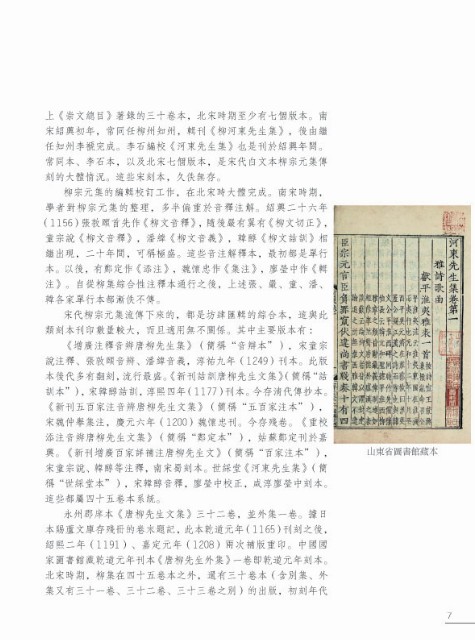 上《崇文總目》著錄的三十卷本，北宋時期至少有七個版本。南
宋紹興初年，常同任柳州知州，輯刊《柳河東先生集》，後由繼
任知州李褫完成。李石編校《河東先生集》也是刊於紹興年間。
常同本、李石本，以及北宋七個版本，是宋代白文本柳宗元集傳
刻的大體情況。這些宋刻本，久佚無存。
柳宗元集的編輯校訂工作，在北宋時大體完成。南宋時期，
學者對柳宗元集的整理，多半偏重於音釋注解。紹興二十六年
(1156)張敦頤首先作《柳文音釋》，隨後嚴有翼有《柳文切正》，
童宗說《柳文音釋》，潘緯《柳文音義》，韓醇《柳文詁訓》相
繼出現，二十年間，可稱極盛。這些音注解釋本，最初都是單行
本。以後，有鄭定作《添注》，魏懷忠作《集注》，廖瑩中作《輯
注》。自從柳集綜合性注釋本通行之後，上述張、嚴、童、潘、
韓各家單行本都漸佚不傳。
宋代柳宗元集流傳下來的，都是坊肆匯輯的綜合本，這與此
類刻本刊印數量較大，而且適用無不關係。其中主要版本有：
《增廣注釋音辯唐柳先生集》（簡稱“音辯本”），宋童宗
說注釋，張敦頤音辯、潘緯音義，淳祐九年(1249)刊本。此版
本後代多有翻刻，流行最盛。《新刊詁訓唐柳先生文集》（簡稱“詁
訓本”），宋韓醇詁訓，淳熙四年(1177)刊本。今存清代傳抄本。
《新刊五百家注音辯唐柳先生文集》（簡稱“五百家注本”），
宋魏仲舉集注，慶元六年(1200)魏懷忠刊。今存殘卷。《重校
添注音辯唐柳先生文集》（簡稱“鄭定本”），姑蘇鄭定刊於嘉
興。《新刊增廣百家詳補注唐柳先生文集》（簡稱“百家注本”），
宋童宗說、韓醇等注釋，南宋蜀刻本。世綵堂《河東先生集》（簡
稱“世綵堂本”），宋韓醇音釋，廖瑩中校正，咸淳廖瑩中刻本。
這些都屬四十五卷本系統。
永州郡庠本《唐柳先生文集》三十二卷，並外集一卷。據日
本賜蘆文庫存殘冊的卷末題記，此本乾道元年(1165)刊刻之後，
紹熙二年(1191)、嘉定元年(1208)兩次補版重印。中國國
家圖書館藏乾道元年刊本《唐柳先生外集》一卷即乾道元年刻本。
北宋時期，柳集在四十五卷本之外，還有三十卷本（含別集、外
集又有三十一卷、三十二卷、三十三卷之別）的出版，初刻年代
河東先生集卷第一
雅詩歌曲
獻平淮夷雅表一首
山東省圖書館藏本
7